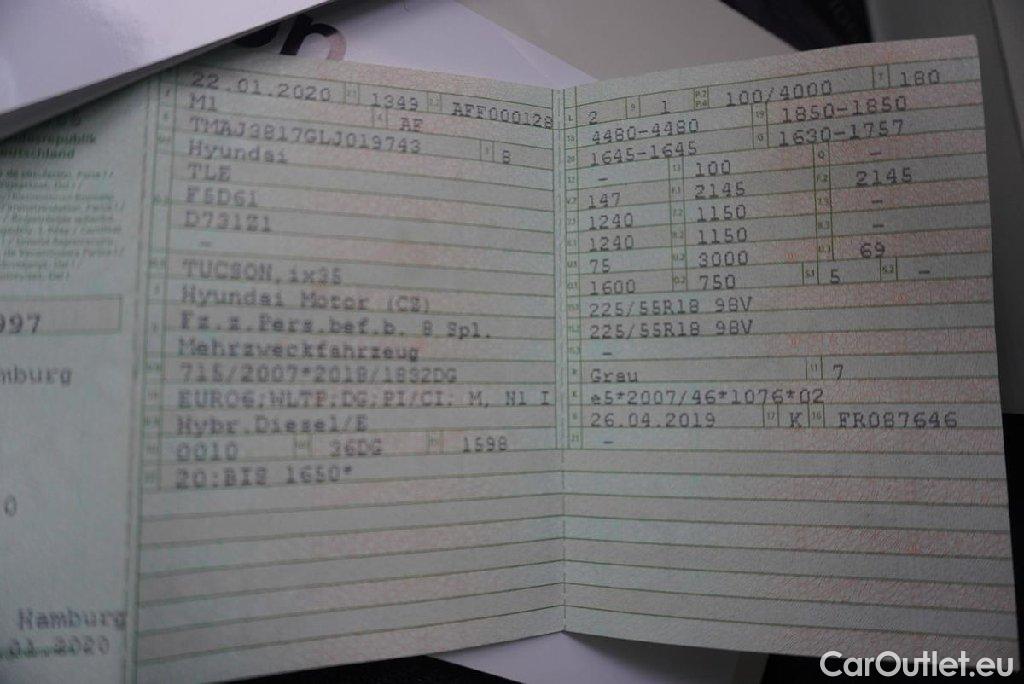 22.01.2020 1349 AFF000128
M1 AF
TMAJ3817GLJ019743 8
Hyundai
TLE
F5D61
D731Z1
-
TUCSON,ix35
Hyundai Motor (CZ)
Fz.z.Pers.bef.b. 8 Spl.
Mehrzweckfahrzeug
715/2007*2018/1832DG
EURO6;WLTP;DG;PI/CI; M, N1 I
Hybr.Diesel/E
0010 36DG 1598
20:BIS 1650*
2 1 100/4000 180
4480-4480 1850-1850
1645-1645 1630-1757
- 100 -
147 2145 2145
1240 1150 -
1240 1150 -
75 3000 69
1600 750 5 -
225/55R18 98V
225/55R18 98V
-
Grau 7
e5*2007/46*1076*02
26.04.2019 K FR087646
-
997
mburg
0
Hamburg
.01.2020
CarOutlet.eu